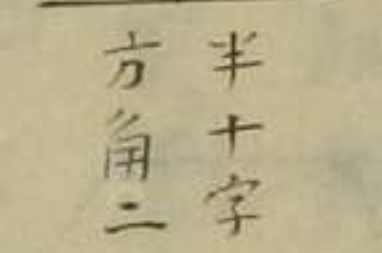 半十字
方角二